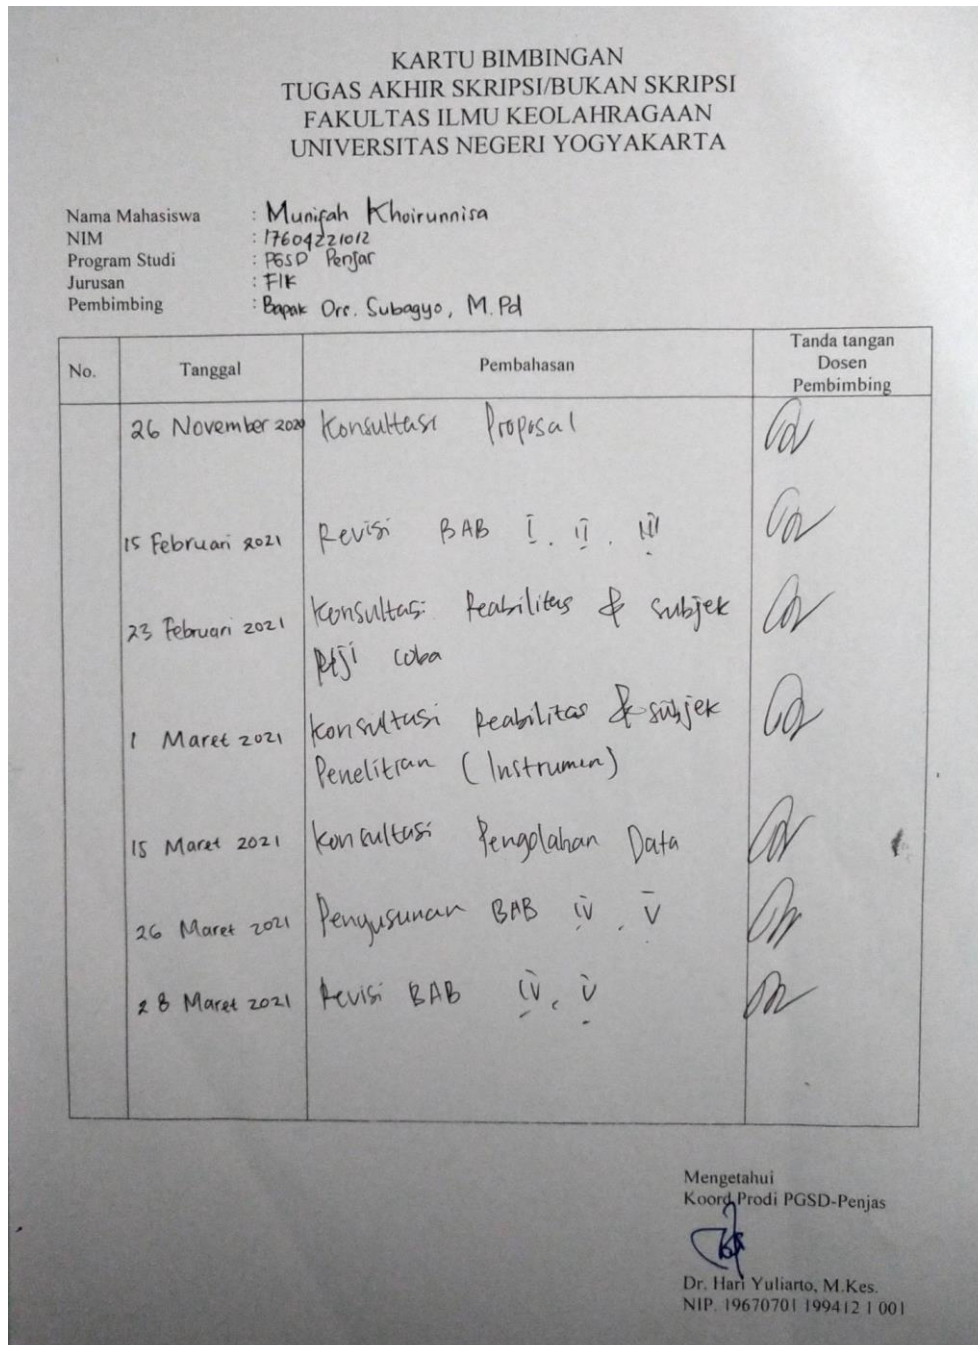 KARTU BIMBINGAN
TUGAS AKHIR SKRIPSI/BUKAN SKRIPSI
FAKULTAS ILMU KEOLAHRAGAAN
UNIVERSITAS NEGERI YOGYAKARTA
Nama Mahasiswa : Munifah Khoirunnisa
NIM : 17604221012
Program Studi : PGSD Penjas
Jurusan : FIK
Pembimbing : Bapak Drs. Subagyo, M.Pd
No. Tanggal Pembahasan Tanda tangan Dosen Pembimbing
26 November 2020 Konsultasi Proposal
15 Februari 2021 Revisi BAB I, II, III
23 Februari 2021 Konsultasi Reabilitas & subjek
Uji coba
1 Maret 2021 Konsultasi Reabilitas & subjek
Penelitian (Instrumen)
15 Maret 2021 Konsultasi Pengolahan Data
26 Maret 2021 Penyusunan BAB IV, V
28 Maret 2021 Revisi BAB IV, V
Mengetahui
Koord Prodi PGSD-Penjas
Dr. Hari Yuliarto, M.Kes.
NIP. 19670701 199412 1 001